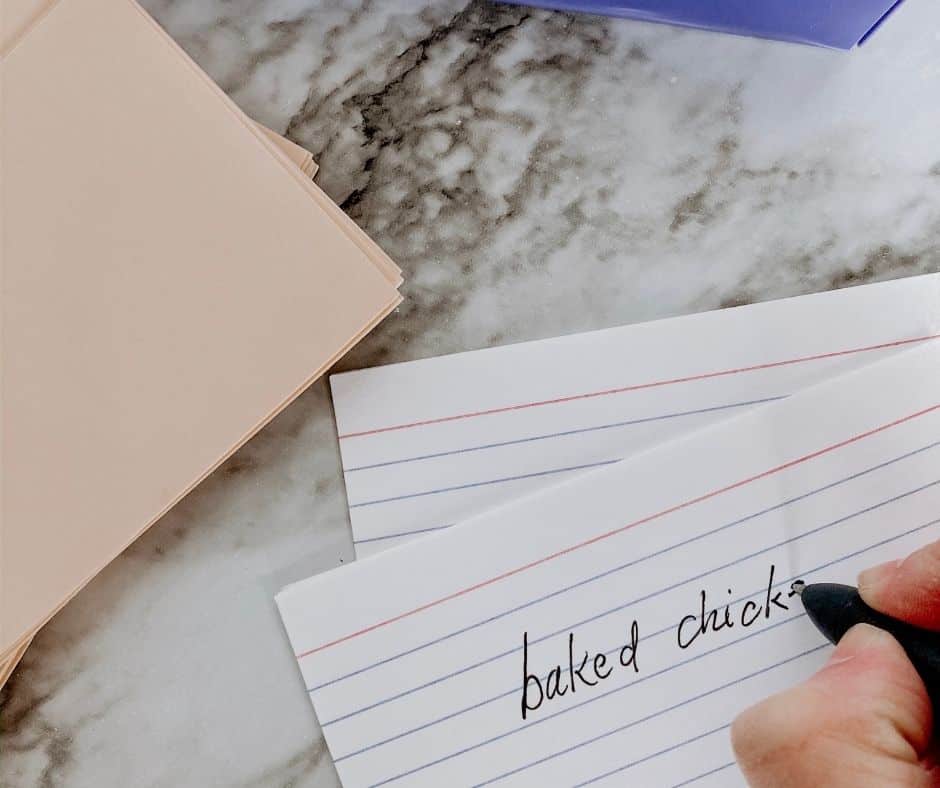 baked chick